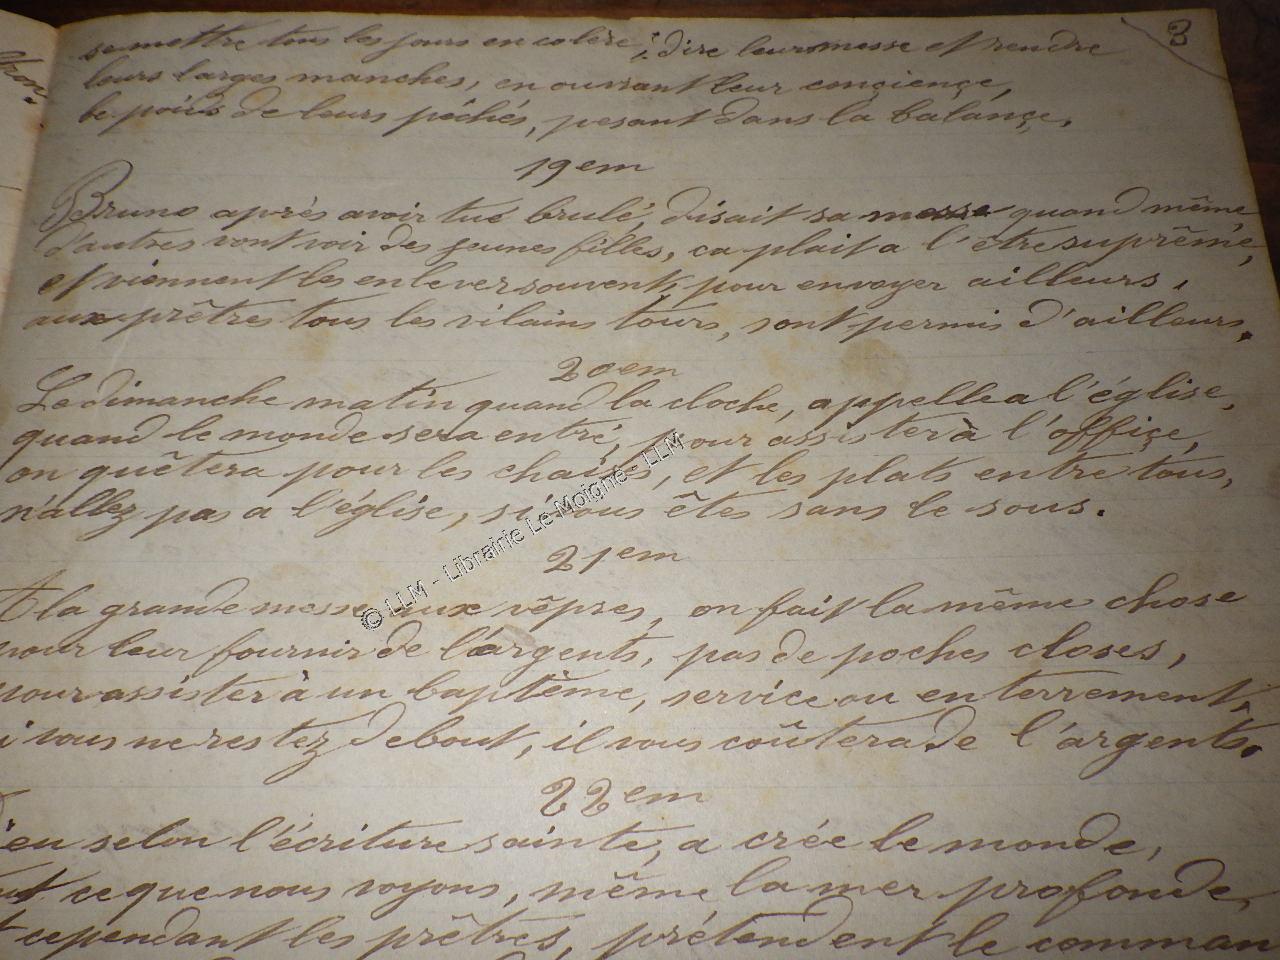 3
se mettre tous les jours en colère ; dire leur messe et rendre
leurs larges manches, en ouvrant leur conciençe,
le poids de leurs péchés, pesant dans la balançe,
19em
Bruno après avoir tué brulé, disait sa messe quand même
d'autres vont voir des jeunes filles, ca plait a l'être suprême,
et viennent les enlever souvent, pour envoyer ailleurs,
aux prêtres tous les vilains tours, sont permis d'ailleurs.
20em
Le dimanche matin quand la cloche, appelle a l'église,
quand le monde sera entré, pour assister à l'offiçe,
on quêtera pour les chaises, et les plats entre tous,
n'allez pas a l'église, si vous êtes sans le sous.
21em
A la grande messe aux vêpres, on fait la même chose
pour leur fournir de l'argents, pas de poches closes,
pour assister à un baptême, service ou enterrement,
si vous ne restez debout, il vous coûtera de l'argents.
22em
Dieu selon l'écriture sainte, a crée le monde,
tout ce que nous voyons, même la mer profonde,
et cependant les prêtres, prétendent le comman
© LLM - Librairie Le Moigne - LLM